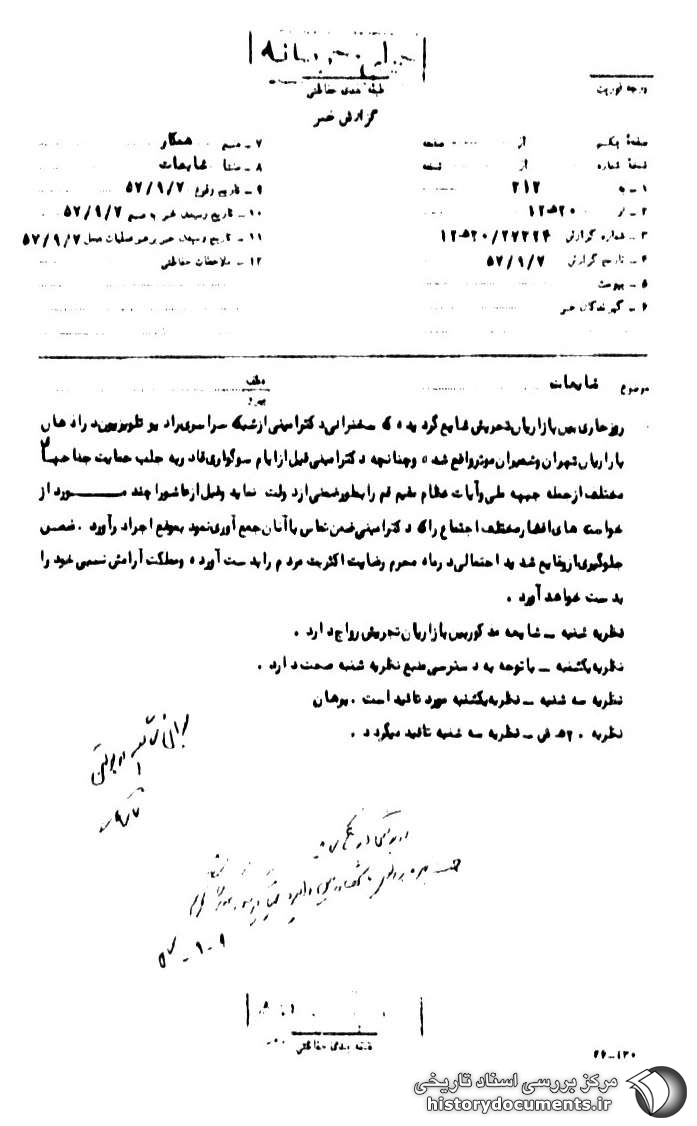 خیلی محرمانه
طبقه بندی حفاظتی
درجه فوریت
گزارش خبر
صفحهٔ یکم از صفحه
نسخهٔ شماره از نسخه
۱ – به ۲۱۲
۲ – از ۲۰ﻫ۱۲
۳ – شماره گزارش ۲۷۲۲۴/۲۰ﻫ۱۲
۴ – تاریخ گزارش ۵۷/۹/۷
۵ – پیوست
۶ – گیرندگان خبر
۷ – منبع همکار
۸ – منشأ شایعات
۹ – تاریخ وقوع ۵۷/۹/۷
۱۰ – تاریخ رسیدن خبر به منبع ۵۷/۹/۷
۱۱ – تاریخ رسیدن خبر برهبر عملیات محل ۵۷/۹/۷
۱۲ – ملاحظات حفاظتی
موضوع شایعات
روز جاری بین بازاریان تجریش شایع گردیده که سخنرانی دکتر امینی از شبکه سراسری رادیو تلویزیون در اذهان
بازاریان تهران و شمیران موثر واقع شده و چنانچه دکتر امینی قبل از ایام سوگواری قادر به جلب حمایت جناحهای
مختلف از جمله جبهه ملی و آیات عظام مقیم قم را بطور ضمنی از دولت نماید و قبل از عاشورا چند مورد از
خواسته های اقشار مختلف اجتماع را که دکتر امینی ضمن تماس با آنان جمع آوری نمود بموقع اجراء درآورد . ضمن
جلوگیری از وقایع شدید احتمالی در ماه محرم رضایت اکثریت مردم را بدست آورده و مملکت آرامش نسبی خود را
بدست خواهد آورد .
نظریه شنبه – شایعه مذکور بین بازاریان تجریش رواج دارد .
نظریه یکشنبه – با توجه به دسترسی منبع نظریه شنبه صحت دارد .
نظریه سه شنبه – نظریه یکشنبه مورد تائید است . برهان
نظریه ۲۰ﻫ ف – نظریه سه شنبه تائید میگردد .
طبقه بندی حفاظتی
۲۶–۱۳۰
مرکز بررسی اسناد تاریخی
historydocuments.ir